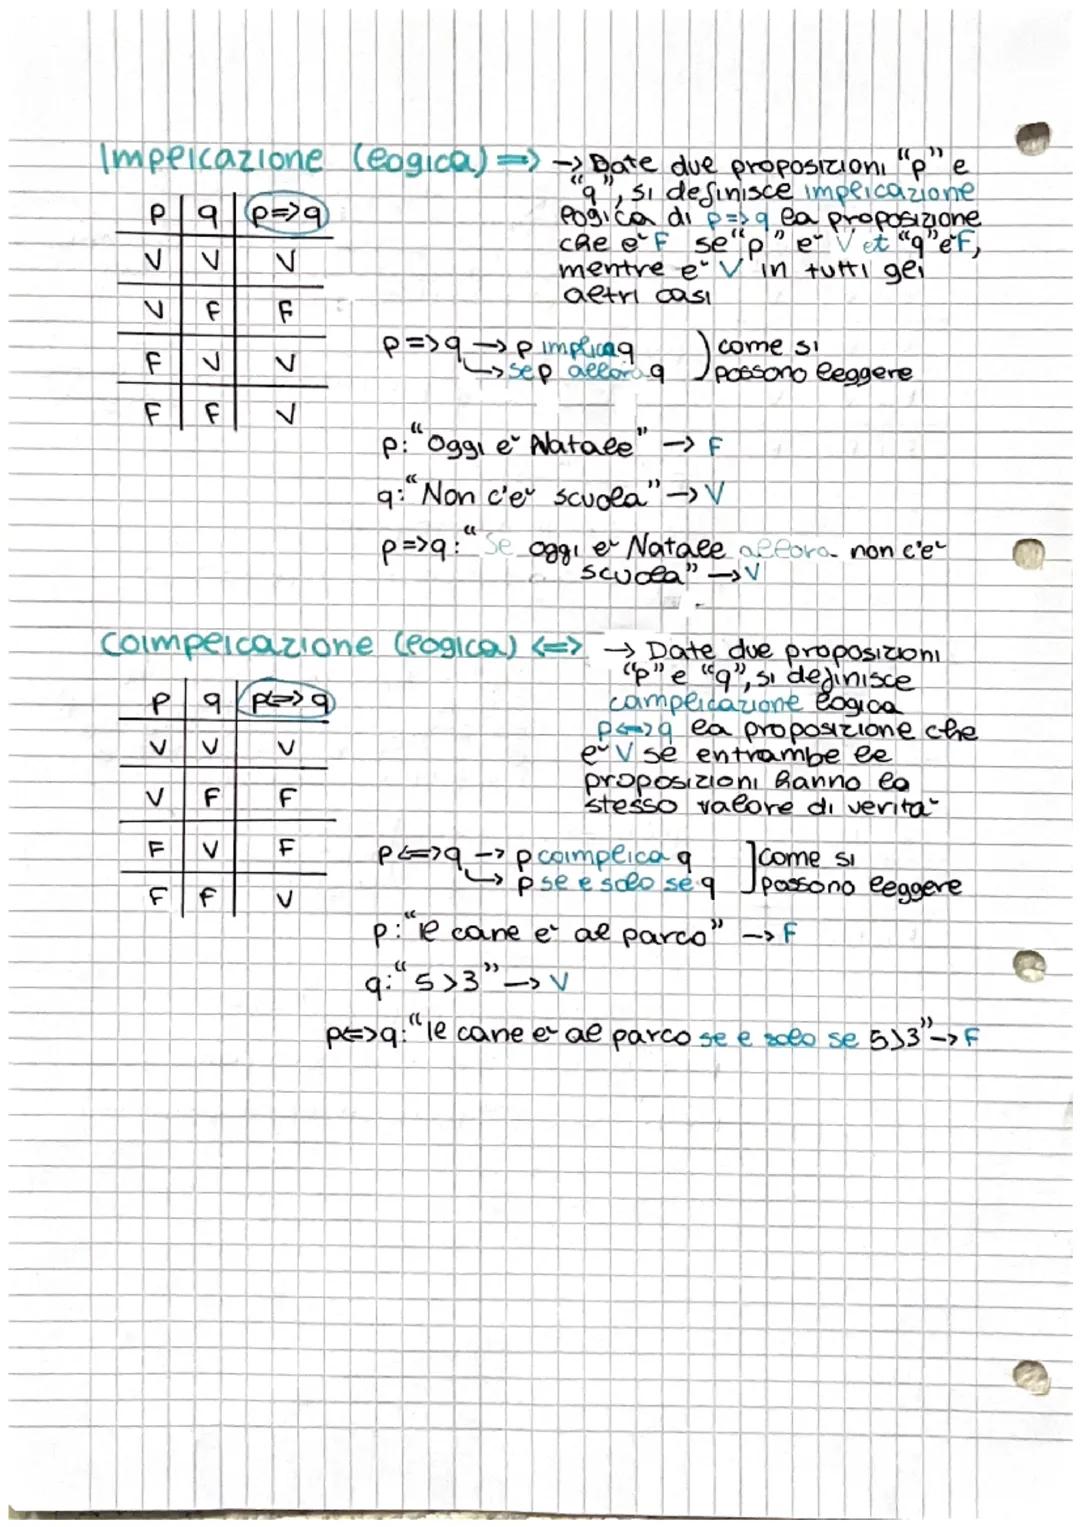 Implicazione (logica) => → Date due proposizioni "p" e
"q", si definisce implicazione
logica di p=>q la proposizione
che è F se "p" è V et "q" è F,
mentre è V in tutti gli
altri casi
p q p=>q
V V V
V F F
F V V
F F V
p=>q → p implica q
→ se p allora q
come si
possono leggere
p: "Oggi è Natale" → F
q: "Non c'è scuola" → V
p=>q: "Se oggi è Natale allora non c'è
scuola" → V
Coimplicazione (logica) <=> → Date due proposizioni
"p" e "q", si definisce
coimplicazione logica
p<=>q la proposizione che
è V se entrambe le
proposizioni hanno lo
stesso valore di verità
p q p<=>q
V V V
V F F
F V F
F F V
p<=>q → p coimplica q
→ p se e solo se q
come si
possono leggere
p: "Il cane è al parco" → F
q: "5>3" → V
p<=>q: "Il cane è al parco se e solo se 5>3" → F